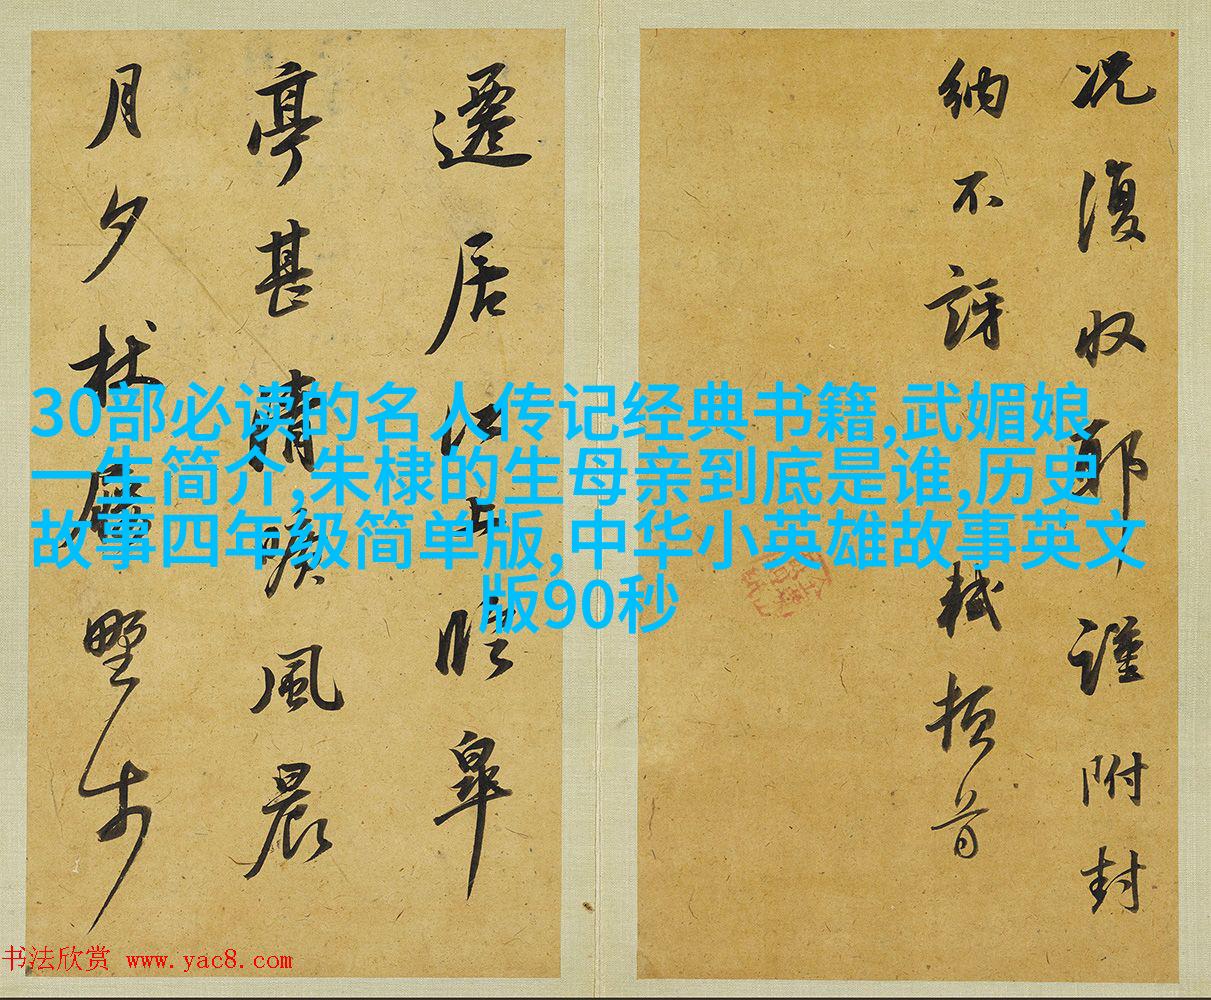 况復収謹附封
納不訝軾頓首
遷居江上臨皋
亭甚清曠風晨
月夕杖屨野步
30部必读的名人传记经典书籍,武媚娘
一生简介,朱棣的生母亲到底是谁,历史
故事四年级简单版,中华小英雄故事英文
版90秒
书法欣赏 www.yac8.com